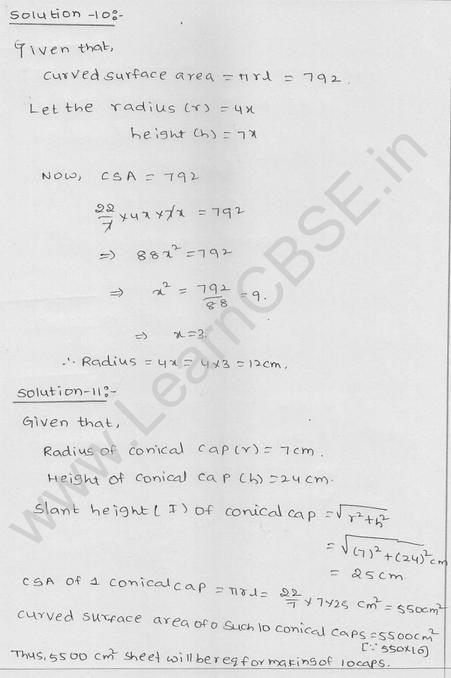 Solution-10:-
Given that,
Curved surface area = πrl = 792.
Let the radius (r) = 4x
height (h) = 7x
Now, CSA = 792
22/7 × 4x × 7x = 792
⇒ 88x² = 792
⇒ x² = 792/88 = 9.
⇒ x=3
∴ Radius = 4x = 4×3 = 12cm.
Solution-11:-
Given that,
Radius of conical cap (r) = 7cm.
Height of conical cap (h) = 24cm.
Slant height (I) of conical cap = √r²+h²
= √(7)²+(24)² cm
= 25cm
CSA of 1 conical cap = πrl = 22/7 × 7×25 cm² = 550cm²
Curved surface area of o such 10 conical caps = 5500cm²
[∵ 550×10]
Thus, 5500 cm² sheet will be req for making of 10caps.
www.LearnCBSE.in